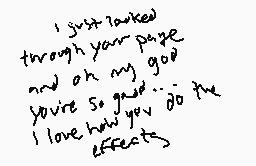 i just looked
through your page
and oh my god
you're so good...
i love how you do the
effects